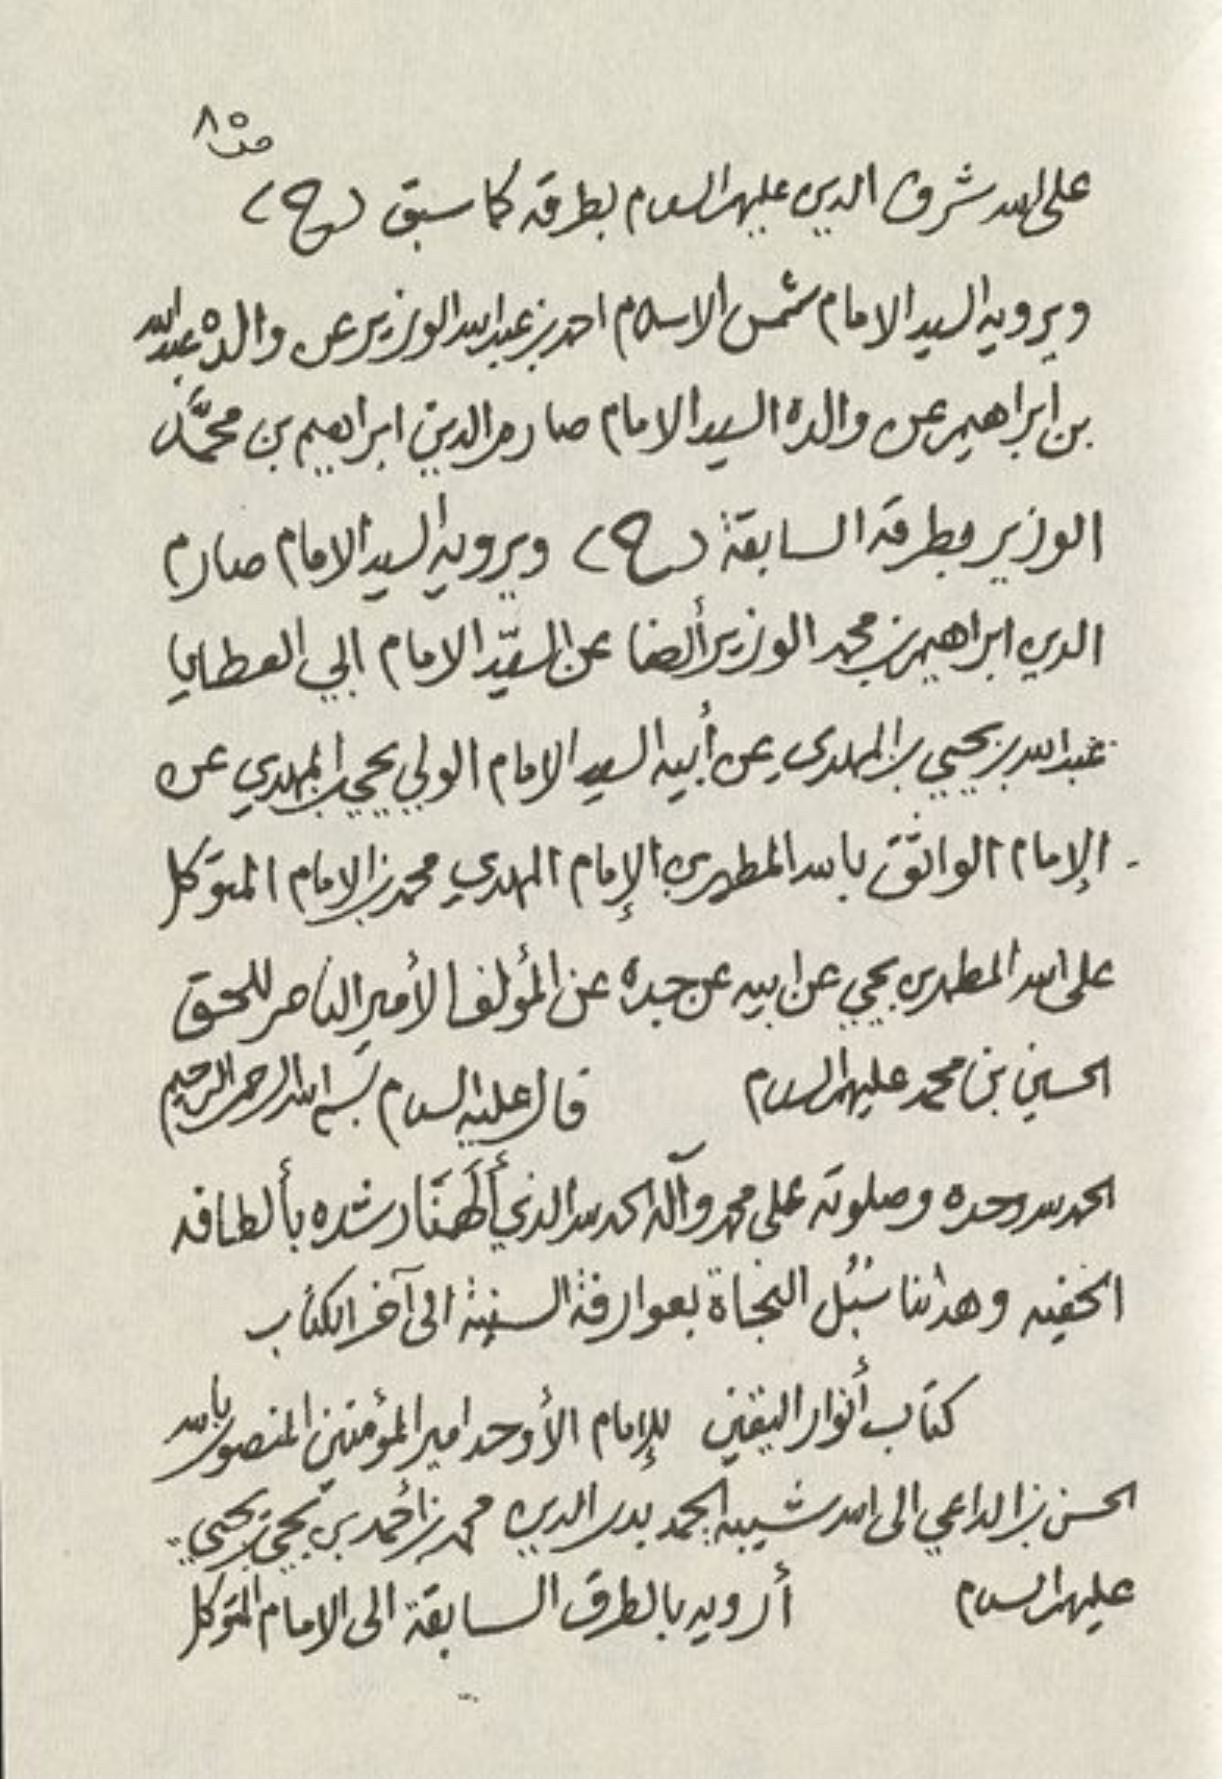 ص ٨٥
على الله شرف الدين عليهم السلام بطرقه كما سبق (ح)
ويرويه السيد الامام شمس الاسلام احمد بن عبد الله الوزير عن والده عبد الله
بن ابراهيم عن والده السيد الامام صارم الدين ابراهيم بن محمَّد
الوزير بطرقه السابقة (ح) ويرويه السيد الامام صارم
الدين ابراهيم بن محمد الوزير أيضا عن السيّد الامام ابي العطايا
عبد الله بن يحيى بن المهدي عن أبيه السيد الامام الولي يحيى بن المهدي عن
الإمام الواثق بالله المطهر بن الإمام المهدي محمد بن الامام المتوكل
على الله المطهر بن يحيى عن ابيه عن جده عن المؤلف الأمير الناصر للحق
الحسين بن محمد عليهم السلام قال عليه السلام بسم الله الرحمن الرحيم
الحمد لله وحده وصلوته على محمد وآله الحمد لله الذي ألهمنا رشده بألطافه
الخفيه وهدانا سُبُل النجاة بعوارفة السنية الى آخر الكتاب
كتاب أنوار اليقين للإمام الأوحد امير المؤمنين المنصور بالله
الحسن بن الداعي الى الله شيبه الحمد بدر الدين محمد بن أحمد بن يحيى بن يحيى
عليهم السلام أرويه بالطرق السابقة الى الامام المتوكل